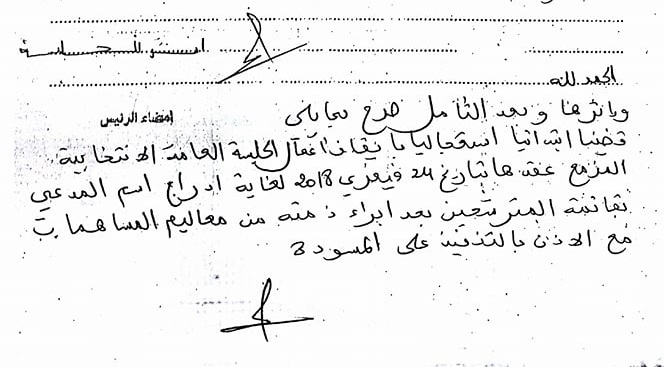 انتهت الجلسة
الحمد لله
امضاء الرئيس
وباثرها وبعد التأمل صرح بما يلي
قضينا ابتدائيا استعجاليا بايقاف اعمال الجلسة العامة الانتخابية
المزمع عقدها بتاريخ 24 فيفري 2018 لغاية ادراج اسم المدعي
بقائمة المترشحين بعد ابراء ذمته من معاليم المساهمات
مع الاذن بالتنفيذ على المسودة